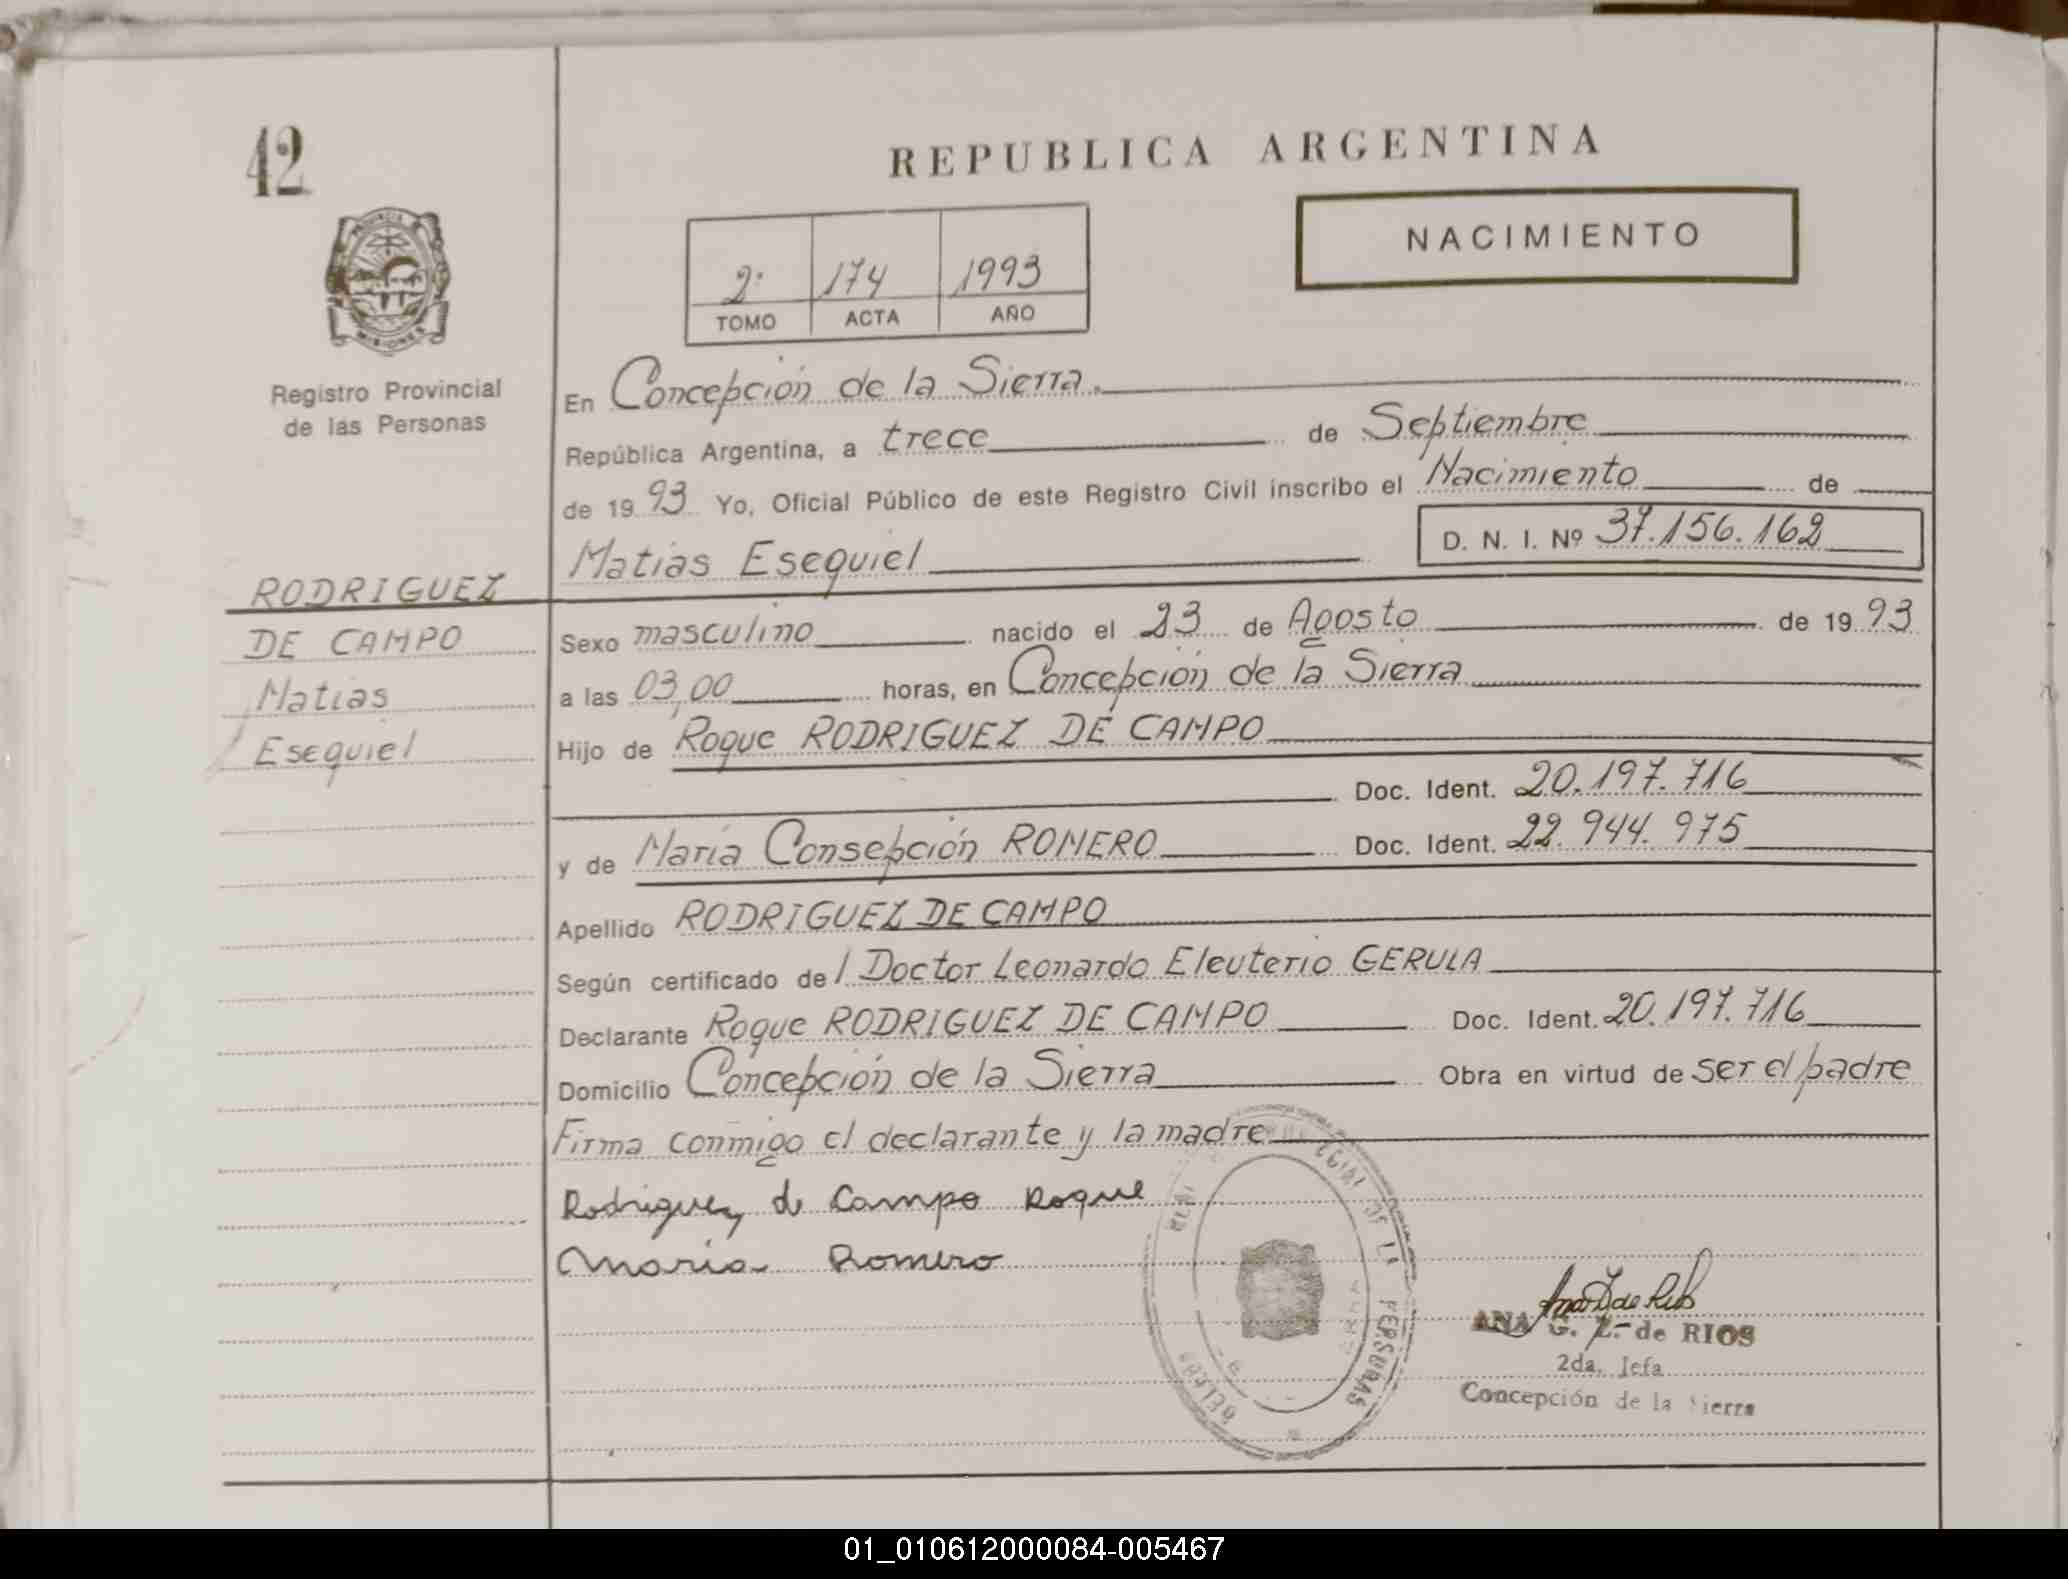 42
REPUBLICA ARGENTINA
NACIMIENTO
2º 174 1993
TOMO ACTA AÑO
PROVINCIA DE
MISIONES
Registro Provincial
de las Personas
En Concepción de la Sierra.
República Argentina, a trece de Septiembre
de 1993 Yo, Oficial Público de este Registro Civil inscribo el Nacimiento de
Matias Esequiel D. N. I. Nº 37.156.162
RODRIGUEZ
DE CAMPO
Matias
Esequiel
Sexo masculino nacido el 23 de Agosto de 1993
a las 03,00 horas, en Concepción de la Sierra
Hijo de Roque RODRIGUEZ DE CAMPO
Doc. Ident. 20.197.716
y de María Consepción ROMERO Doc. Ident. 22.944.975
Apellido RODRIGUEZ DE CAMPO
Según certificado del Doctor Leonardo Eleuterio GERULA
Declarante Roque RODRIGUEZ DE CAMPO Doc. Ident. 20.197.716
Domicilio Concepción de la Sierra Obra en virtud de ser el padre
Firma conmigo el declarante y la madre
Rodriguez de Campo Roque
Maria Romero
DE LAS PERSONAS
ANA G. Z. de RIOS
2da. Jefa
Concepción de la Sierra
01_010612000084-005467